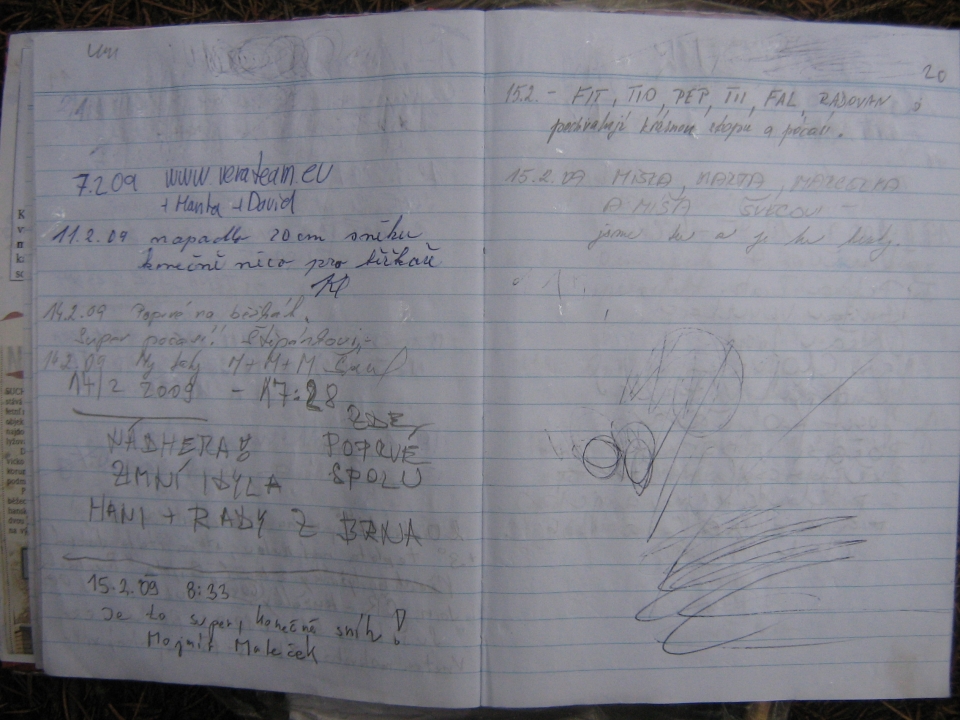 7.2.09 www.verateam.eu
+ Hanka + David
11.2.09 napadlo 20cm sněhu
konečně něco pro běžkaře
14.2.09 Poprvé na běžkách.
Super počasí! Štěpánkovi
14.2.09 My taky M+M+M
14/2 2009 - 17:28
NÁDHERA ZDE
ZIMNÍ IDYLA POPRVÉ
SPOLU
HANI + RADY Z BRNA
15.2.09 8:33
Je to super, konečně sníh!
Hojnik Mateček
20
15.2. - FIT, TIO, PEP, TII, FAL, RADOVAN
pochvalují krásnou stopu a počasí.
15.2.09 MIŠKA, MARTA, MARCELKA
A MÍŠA ŠVECOVI
jsme tu a je tu